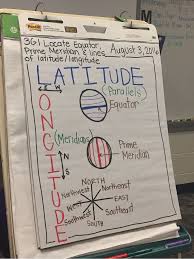 Post-it
3G1 Locate Equator,
Prime Meridian & lines
of latitude/longitude
August 3, 2016
LATITUDE
(Parallels)
E W
Equator
LONGITUDE
(Meridians)
Prime
Meridian
N
S
NORTH
Northwest Northeast
WEST EAST
Southwest Southeast
SOUTH